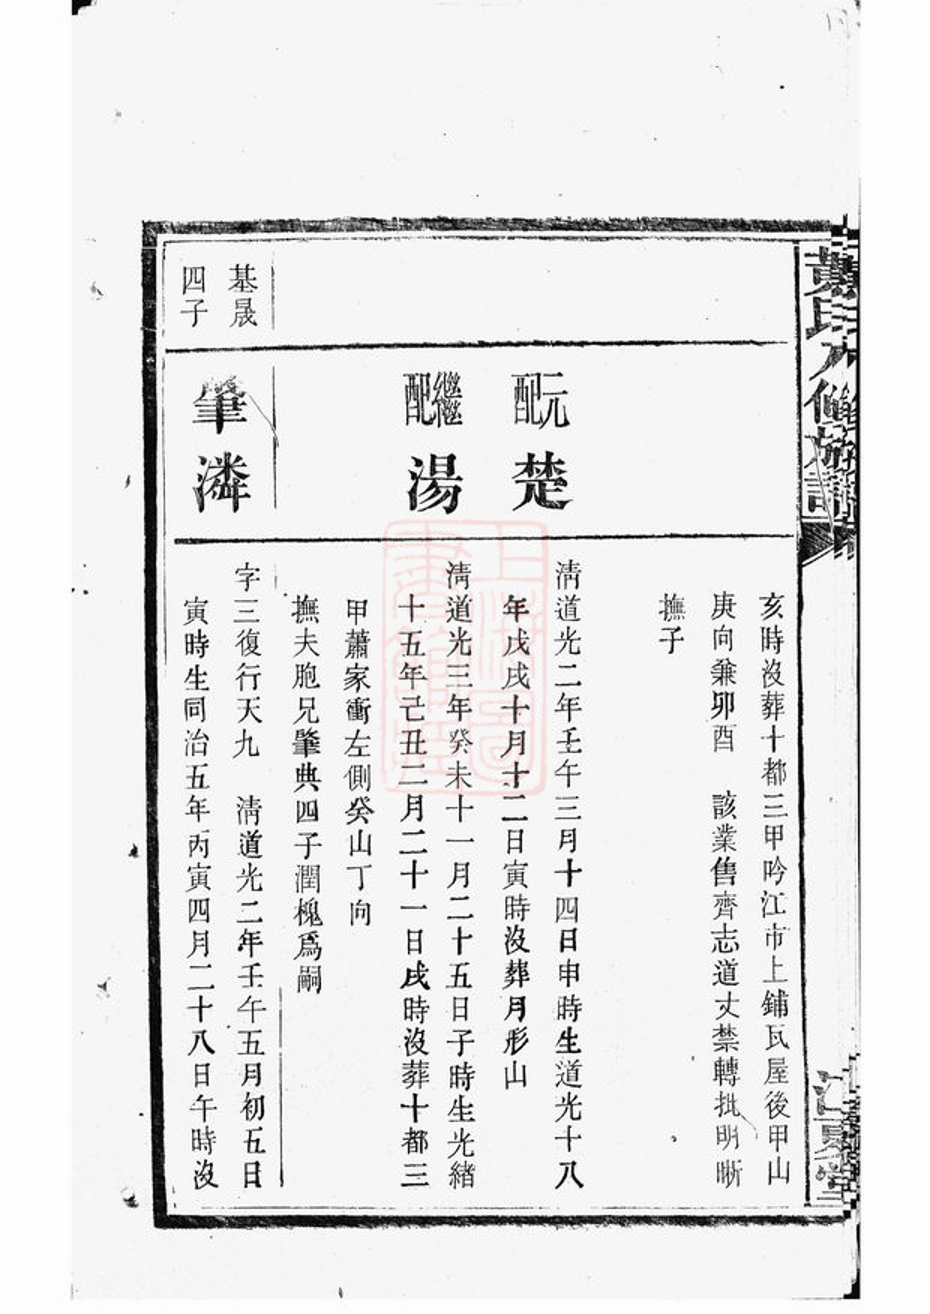 亥時沒葬十都三甲吟江市上鋪瓦屋後甲山
庚向兼卯酉　該業售齊志道丈禁轉批明晰
撫子
元配楚
清道光二年壬午三月十四日申時生道光十八
年戊戌十月十二日寅時沒葬月形山
繼配湯
清道光三年癸未十一月二十五日子時生光緒
十五年己丑二月二十一日戌時沒葬十都三
甲蕭家衝左側癸山丁向
撫夫胞兄肇典四子潤槐爲嗣
基晟四子
肇潾
字三復行天九　清道光二年壬午五月初五日
寅時生同治五年丙寅四月二十八日午時沒